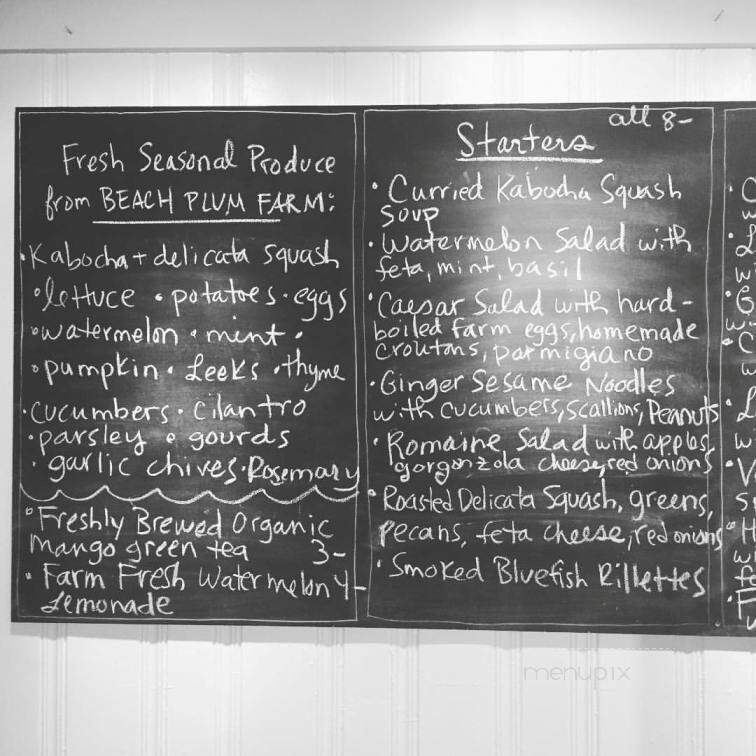 Fresh Seasonal Produce
from BEACH PLUM FARM:
• Kabocha + delicata squash
• lettuce • potatoes • eggs
• watermelon • mint •
• pumpkin • Leeks • thyme
• cucumbers • cilantro
• parsley • gourds
• garlic chives • Rosemary
• Freshly Brewed Organic
mango green tea 3-
• Farm Fresh Watermelon 4-
Lemonade
all 8-
Starters
• Curried Kabocha Squash
Soup
• Watermelon Salad with
feta, mint, basil
• Caesar Salad with hard-
boiled farm eggs, homemade
croutons, parmigiano
• Ginger Sesame Noodles
with cucumbers, scallions, Peanuts
• Romaine Salad with apples,
gorgonzola cheese, red onions
• Roasted Delicata Squash, greens,
pecans, feta cheese, red onions
• Smoked Bluefish Rillettes
menupix